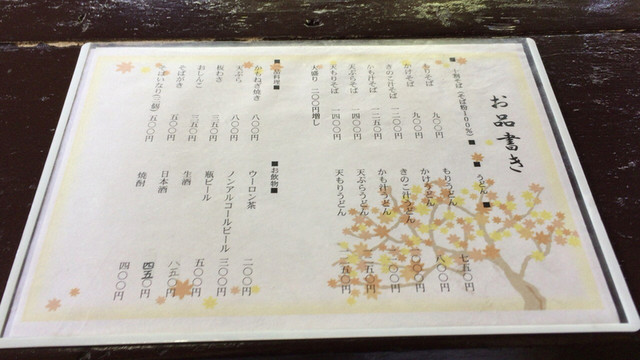 お品書き
■十割そば（そば粉100%）■
もりそば 九〇〇円
かけそば 九〇〇円
きのこ汁そば 一二〇〇円
かも汁そば 一二五〇円
天ぷらそば 一四〇〇円
天もりそば 一四〇〇円
大盛り 二〇〇円増し
■うどん■
もりうどん 七五〇円
かけうどん 八〇〇円
きのこ汁うどん
かも汁うどん
天ぷらうどん
天もりうどん
かもねぎ焼き 八〇〇円
天ぷら 八〇〇円
板わさ 三五〇円
おしんこ 三五〇円
そばがき 五〇〇円
そばいなり（三個） 五〇〇円
■お飲物■
ウーロン茶 二〇〇円
ノンアルコールビール 三〇〇円
瓶ビール 五〇〇円
生酒 八五〇円
日本酒 四五〇円
焼酎 四〇〇円